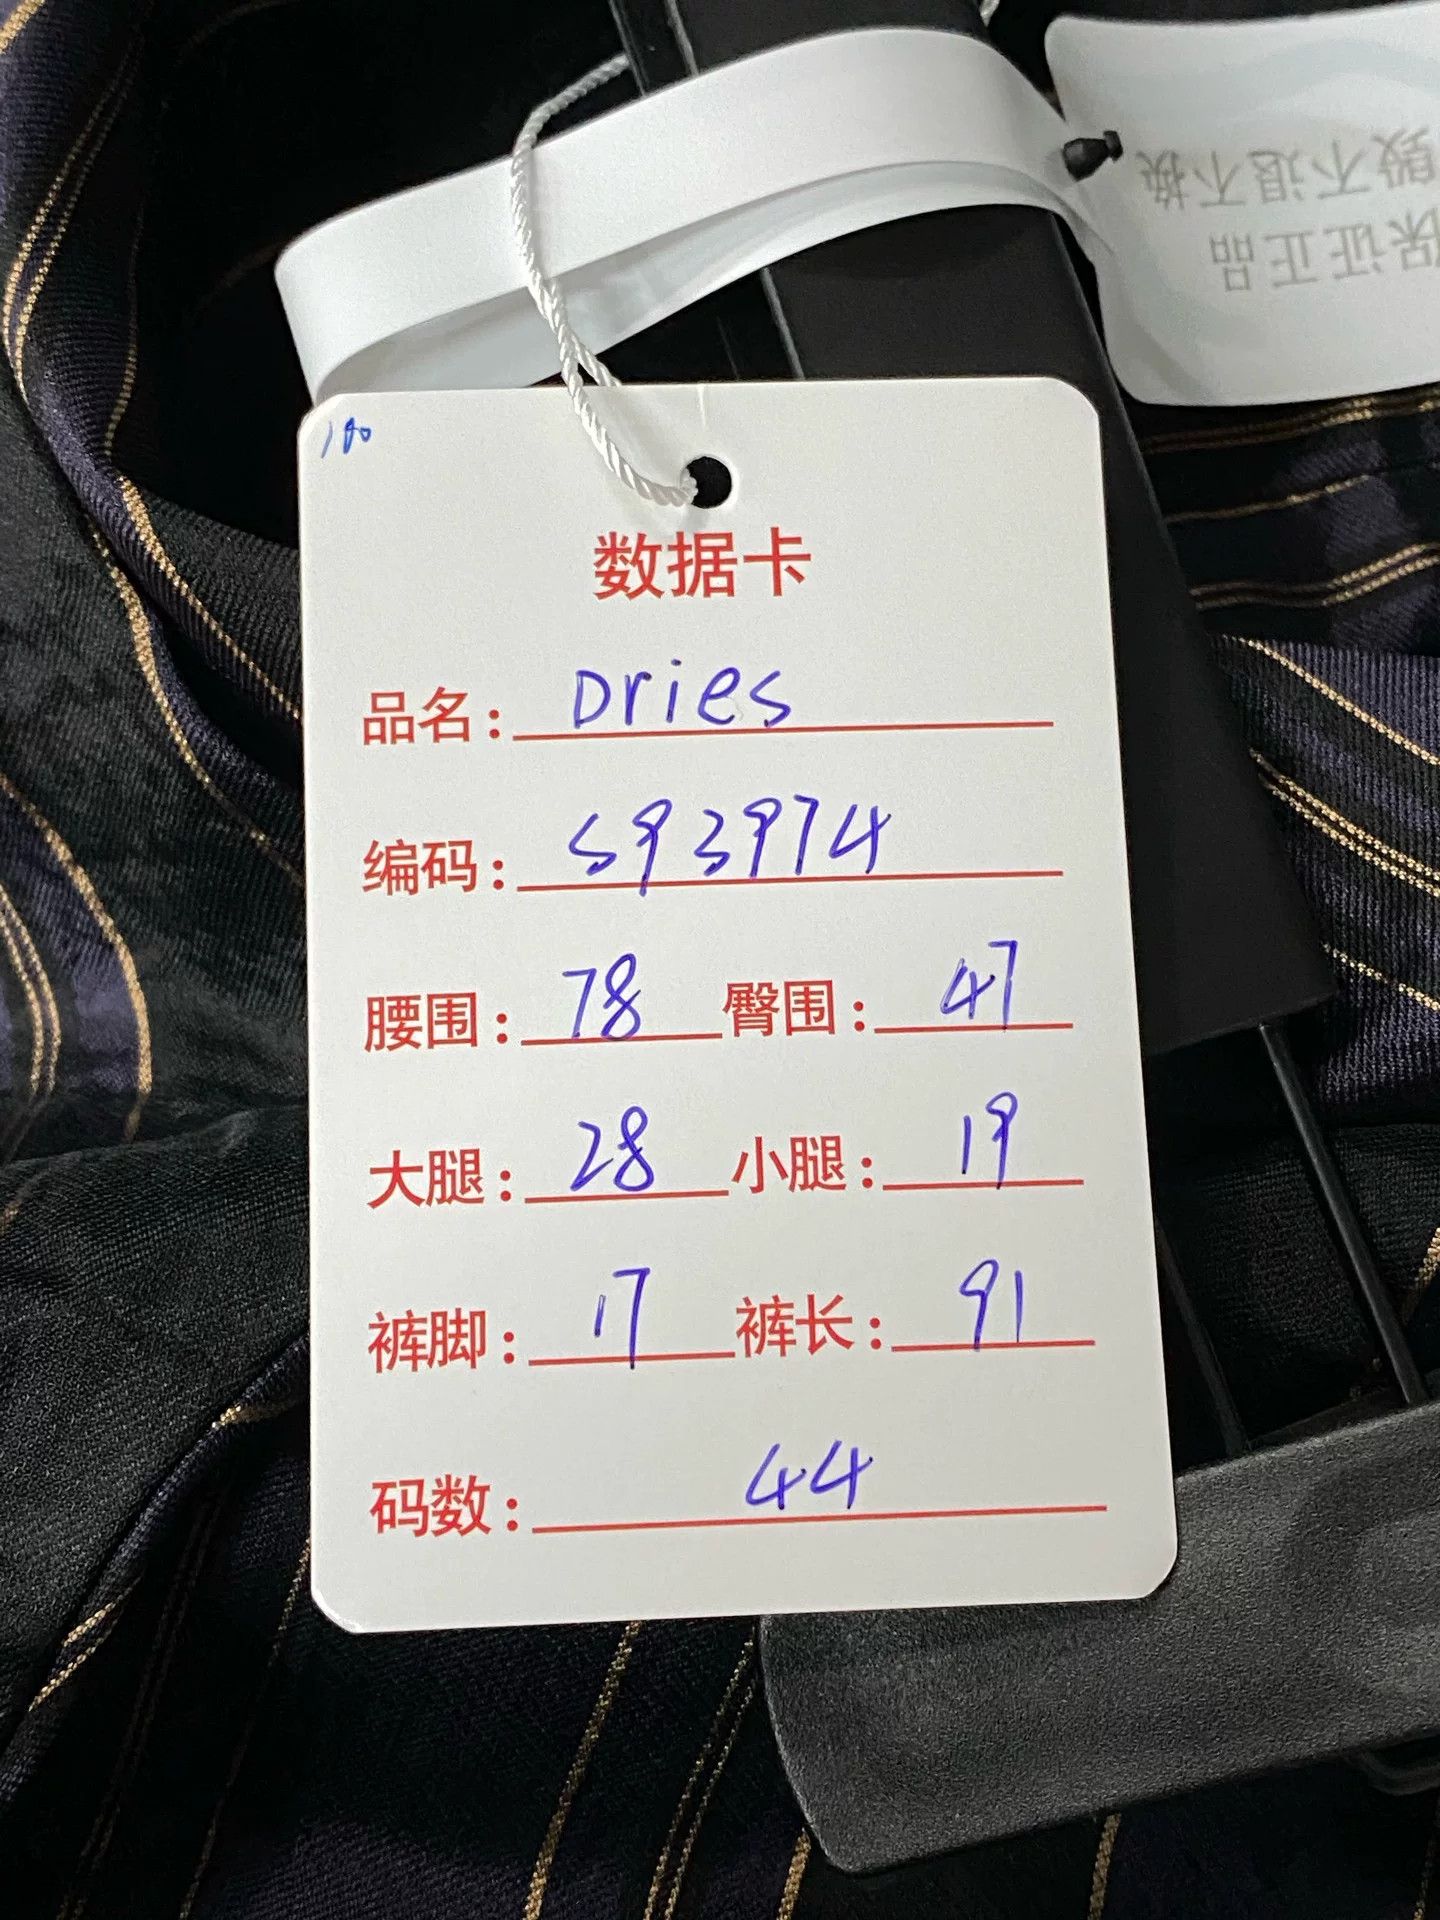 毁不退不换
保证正品
数据卡
品名: Dries
编码: S93974
腰围: 78 臀围: 47
大腿: 28 小腿: 19
裤脚: 17 裤长: 91
码数: 44